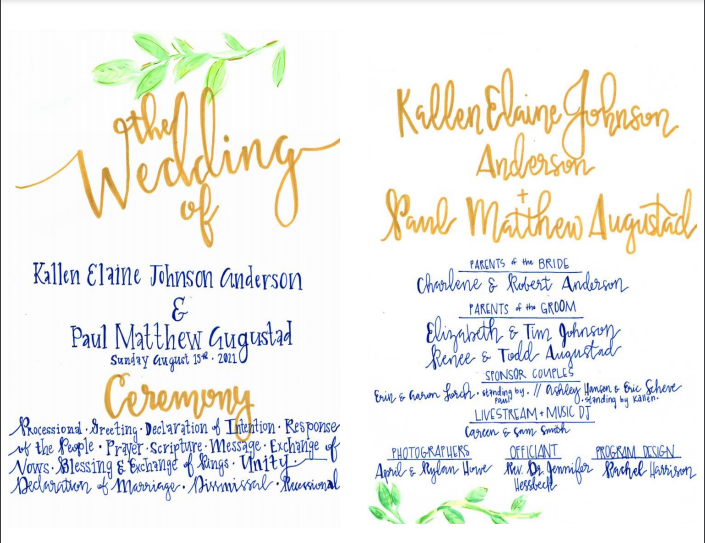 the
Wedding
of
Kallen Elaine Johnson Anderson
&
Paul Matthew Augustad
Sunday August 15th · 2021
Ceremony
Processional · Greeting · Declaration of Intention · Response
of the People · Prayer · Scripture · Message · Exchange of
Vows · Blessing & Exchange of Rings · Unity
Declaration of Marriage · Dismissal · Recessional
Kallen Elaine Johnson
Anderson
+
Paul Matthew Augustad
PARENTS of the BRIDE
Charlene & Robert Anderson
PARENTS of the GROOM
Elizabeth & Tim Johnson
Renee & Todd Augustad
SPONSOR COUPLES
Erin & Aaron · standing by Paul // Ashley Hansen & Eric Scheve · standing by Kallen
LIVESTREAM + MUSIC DJ
Careen & Sam Smith
PHOTOGRAPHERS
April & Rylan Howe
OFFICIANT
Rev. Dr. Jennifer
Hessbeck
PROGRAM DESIGN
Rachel Harrison